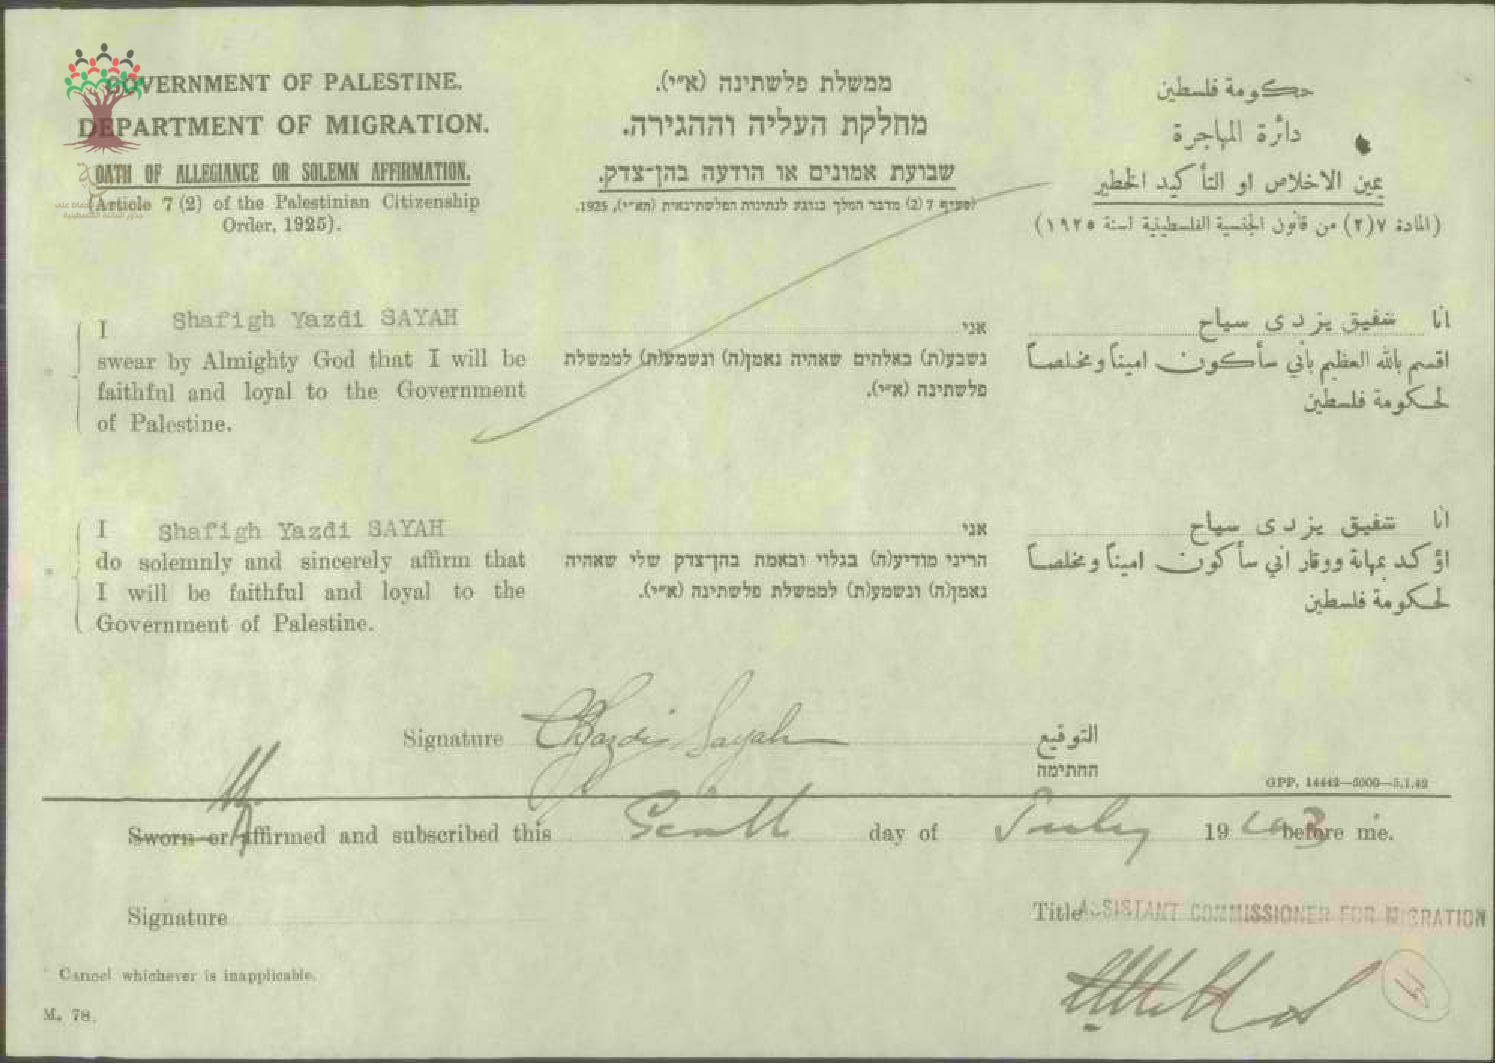 GOVERNMENT OF PALESTINE.
DEPARTMENT OF MIGRATION.
OATH OF ALLEGIANCE OR SOLEMN AFFIRMATION.
(Article 7 (2) of the Palestinian Citizenship
Order, 1925).
ממשלת פלשתינה (א״י).
מחלקת העליה וההגירה.
שבועת אמונים או הודעה בהן־צדק.
(סעיף 7 (2) מדבר המלך בנוגע לנתינות הפלשתינאית (הא״י), 1925.
حكومة فلسطين
دائرة المهاجرة
يمين الاخلاص او التأكيد الخطير
(المادة ٧(٢) من قانون الجنسية الفلسطينية لسنة ١٩٢٥)
I Shafigh Yazdi SAYAH
swear by Almighty God that I will be
faithful and loyal to the Government
of Palestine.
אני
נשבע(ת) באלהים שאהיה נאמן(ה) ונשמע(ת) לממשלת
פלשתינה (א״י).
انا شفيق يزدى سياح
اقسم بالله العظيم بأني سأكون اميناً ومخلصاً
لحكومة فلسطين
I Shafigh Yazdi SAYAH
do solemnly and sincerely affirm that
I will be faithful and loyal to the
Government of Palestine.
אני
הריני מודיע(ה) בגלוי ובאמת בהן־צדק שלי שאהיה
נאמן(ה) ונשמע(ת) לממשלת פלשתינה (א״י).
انا شفيق يزدى سياح
اؤكد بمهابة ووقار اني سأكون اميناً ومخلصاً
لحكومة فلسطين
Signature Yazdi Sayah التوقيع
החתימה
GPP. 14442—5000—5.1.42
Sworn or affirmed and subscribed this day of July 1943 before me.
Signature
Title ASSISTANT COMMISSIONER FOR MIGRATION
Cancel whichever is inapplicable.
M. 78.